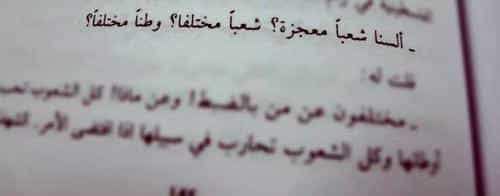 ـ ألسنا شعباً معجزة؟ شعباً مختلفا؟ وطناً مختلفاً؟
قلت له :
ـ مختلفون عن من بالضبط! وعن ماذا! كل الشعوب تحب
أوطانها وكل الشعوب تحارب في سبيلها اذا اقتضى الأمر.